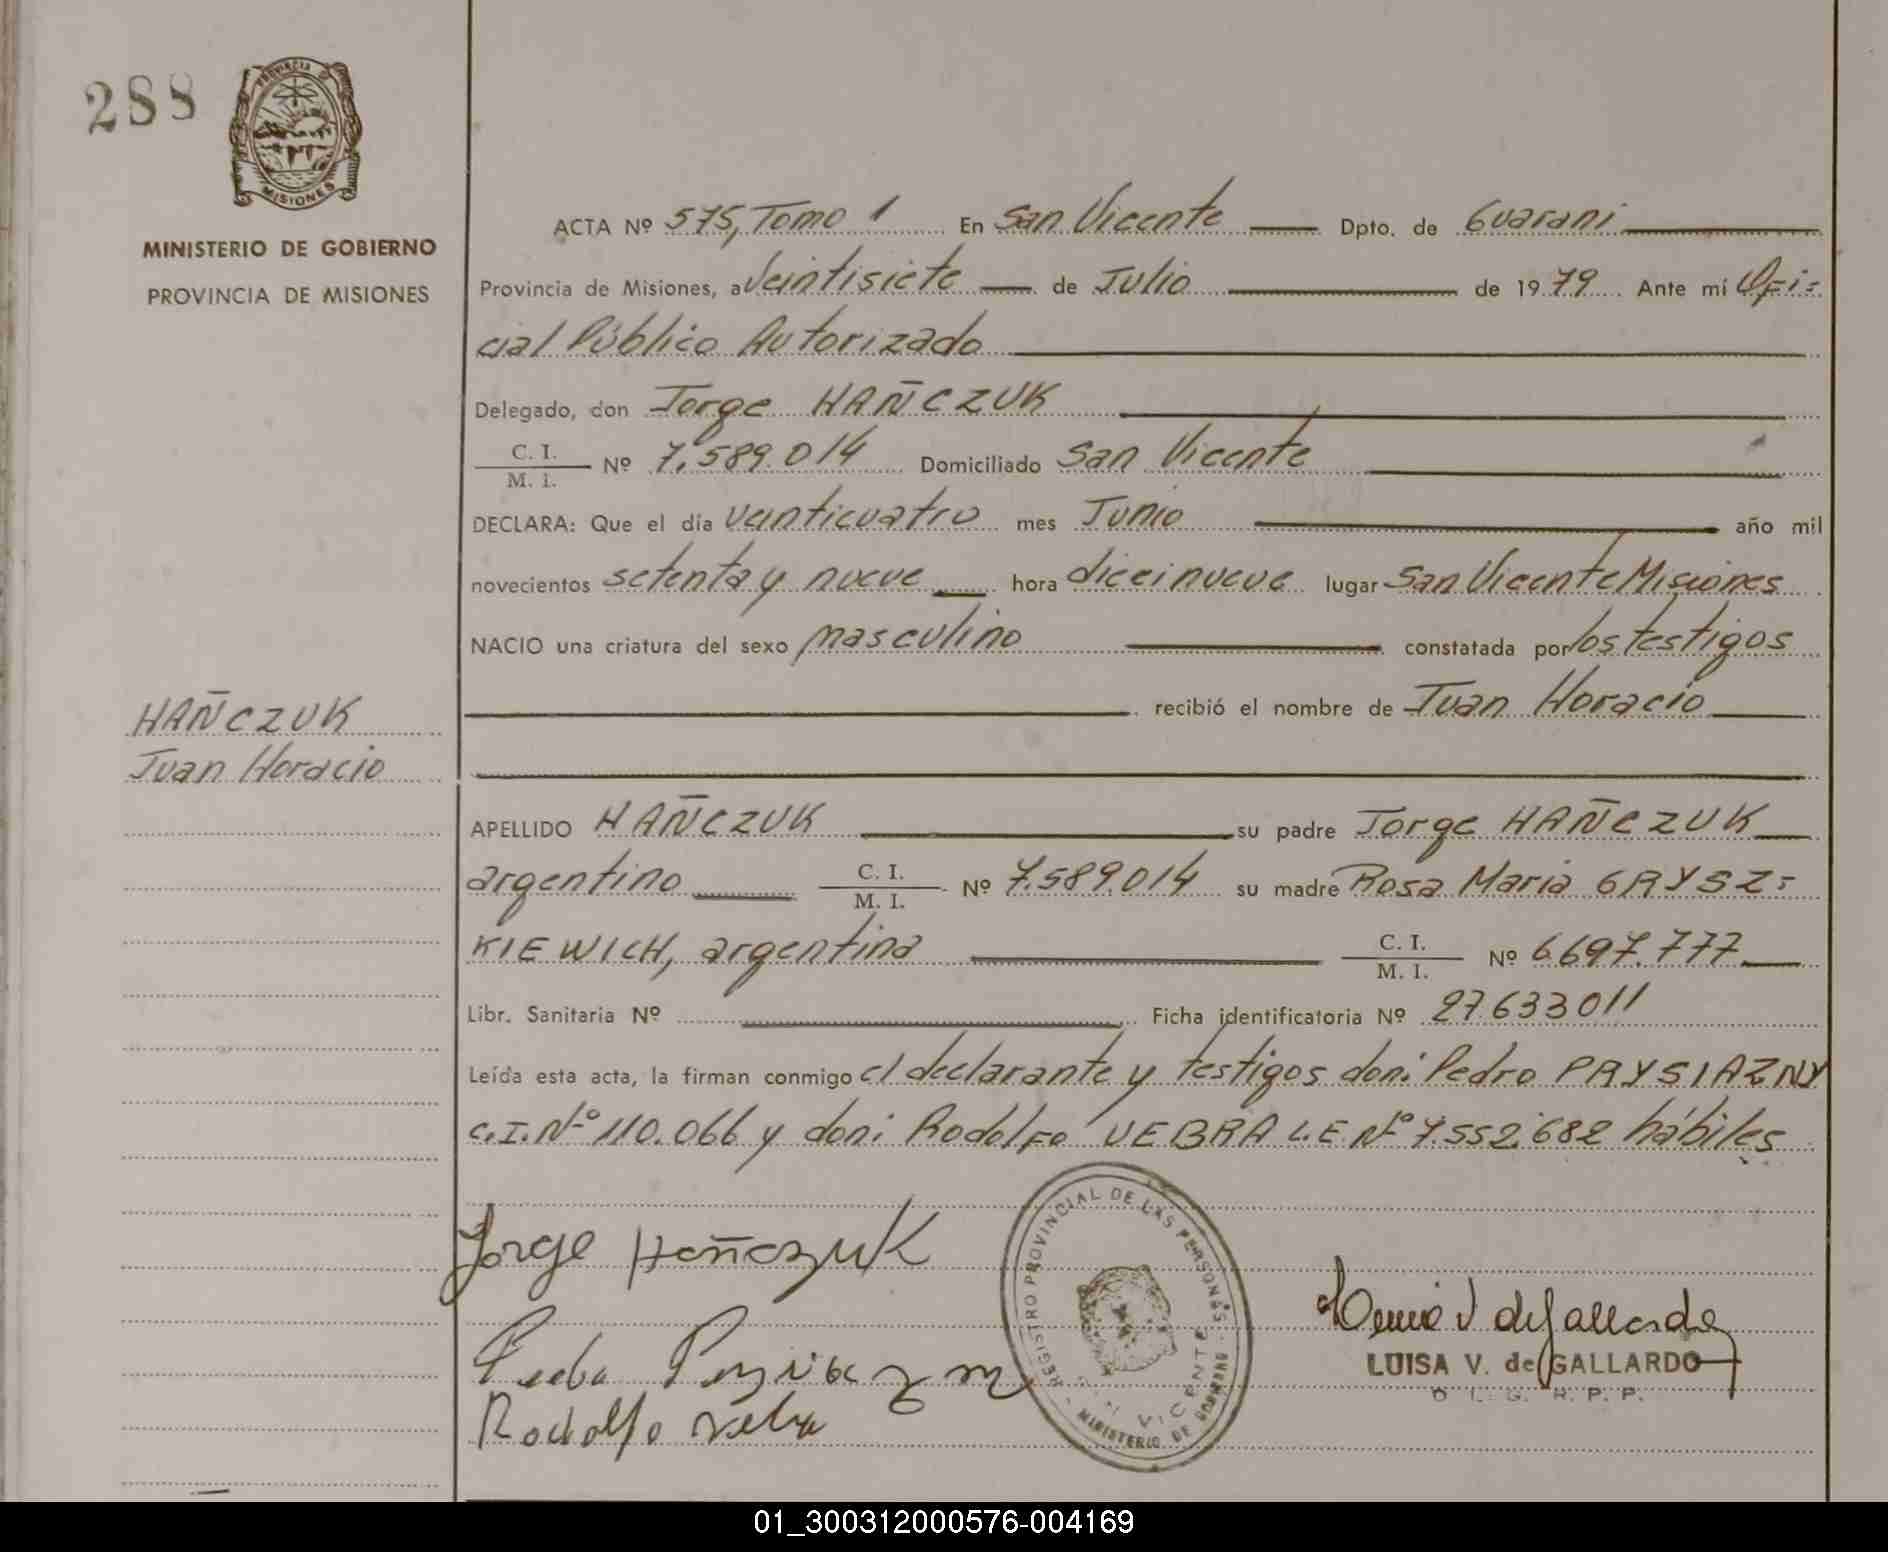 288
PROVINCIA DE
MISIONES
MINISTERIO DE GOBIERNO
PROVINCIA DE MISIONES
ACTA Nº 575, Tomo 1 En San Vicente Dpto. de Guarani
Provincia de Misiones, a Veintisiete de Julio de 1979 Ante mí Ofi=
cial Público Autorizado
Delegado, don Jorge HAÑCZUK
C. I.
M. I. Nº 7.589.014 Domiciliado San Vicente
DECLARA: Que el día veinticuatro mes Junio año mil
novecientos setenta y nueve hora diecinueve lugar San Vicente Misiones
NACIO una criatura del sexo masculino constatada por los testigos
recibió el nombre de Juan Horacio
HAÑCZUK
Juan Horacio
APELLIDO HAÑCZUK su padre Jorge HAÑCZUK
argentino C. I.
M. I. Nº 7.589.014 su madre Rosa Maria GRYSZ=
KIEWICH, argentina C. I.
M. I. Nº 6.697.777
Libr. Sanitaria Nº Ficha identificatoria Nº 27633011
Leída esta acta, la firman conmigo el declarante y testigos don: Pedro PRYSIAZNY
C.I. Nº 110.066 y don: Rodolfo VEBRA L.E Nº 7.552.682 hábiles
Jorge Hañczuk
Rodolfo
REGISTRO PROVINCIAL DE LAS PERSONAS
VICENTE
MINISTERIO DE GOBIERNO
de Gallardo
LUISA V. de GALLARDO
O. I. G. R. P. P.
01_300312000576-004169